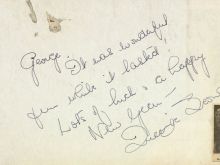 George,
It was wonderful
fun while it lasted!
Lots of luck & a happy
New Year –